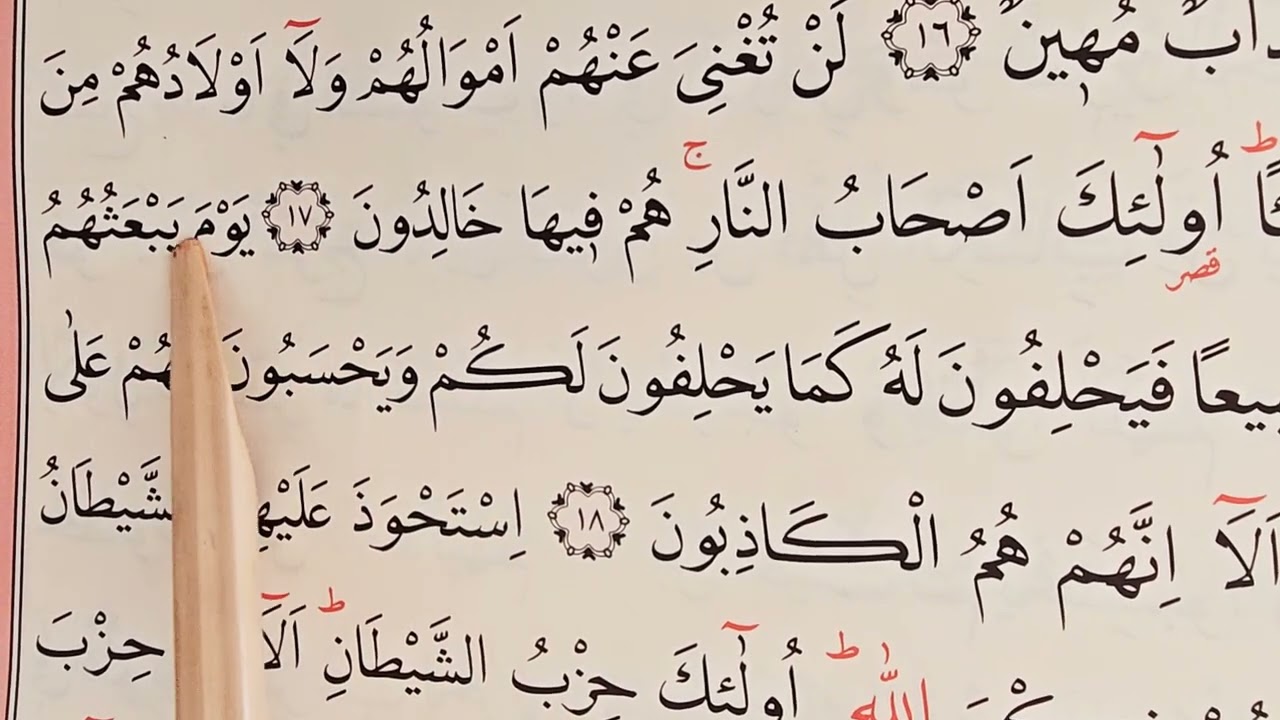 مُهِينٌ ﴿١٦﴾ لَنْ تُغْنِىَ عَنْهُمْ اَمْوَالُهُمْ وَلَٓا اَوْلَادُهُمْ مِنَ
اُو۬لٰٓئِكَ اَصْحَابُ النَّارِۚ هُمْ فِيهَا خَالِدُونَ ﴿١٧﴾ يَوْمَ يَبْعَثُهُمُ
فَيَحْلِفُونَ لَهُ كَمَا يَحْلِفُونَ لَكُمْ وَيَحْسَبُونَ عَلٰى
اَلَٓا اِنَّهُمْ هُمُ الْكَاذِبُونَ ﴿١٨﴾ اِسْتَحْوَذَ
اللّٰهِۜ اُو۬لٰٓئِكَ حِزْبُ الشَّيْطَانِۜ حِزْبَ